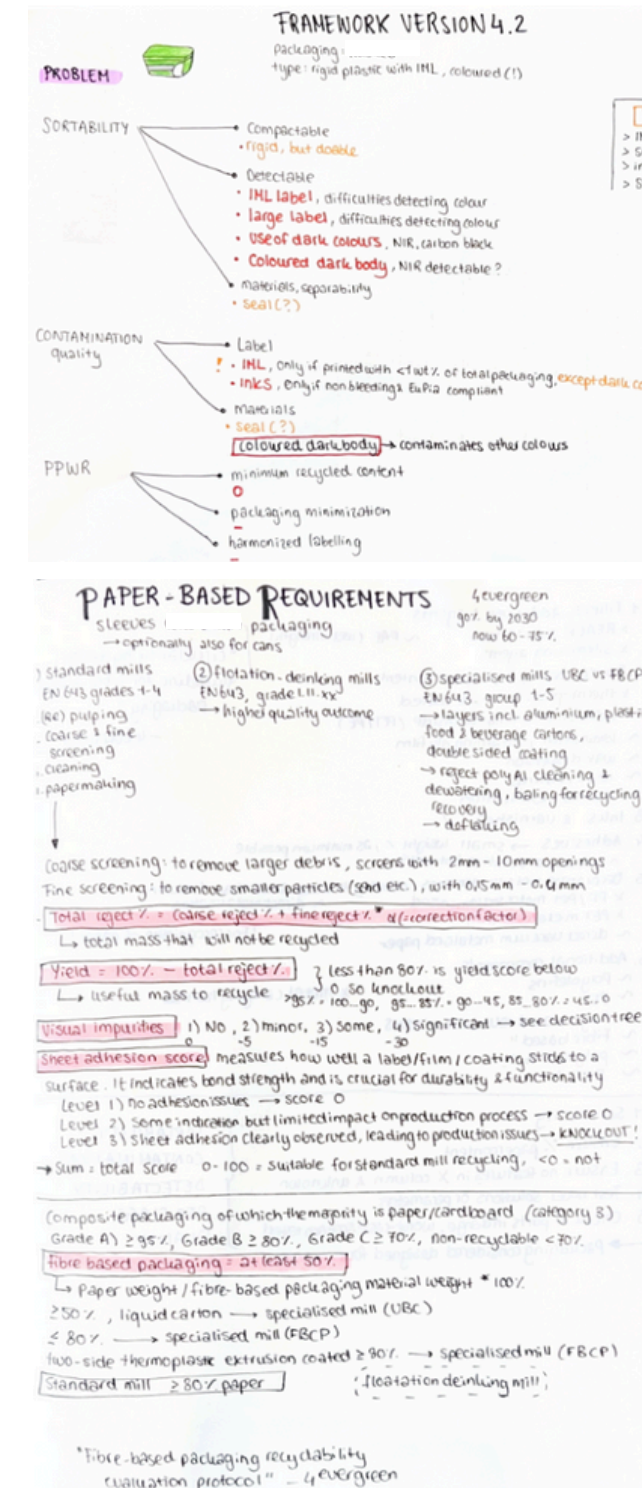 FRAMEWORK VERSION 4.2
packaging:
type: rigid plastic with IML, coloured (!)
PROBLEM
SORTABILITY
Compactable
• rigid, but doable
Detectable
• IML label, difficulties detecting colour
• large label, difficulties detecting colour
• use of dark colours, NIR, carbon black
• Coloured dark body, NIR detectable?
materials, separability
• seal (?)
CONTAMINATION
quality
Label
! • IML, only if printed with <1 wt% of total packaging, except dark co
• Inks, only if non bleeding & EuPia compliant
materials
• seal (?)
coloured dark body → contaminates other colours
PPWR
minimum recycled content
O
packaging minimization
–
harmonized labelling
–
PAPER-BASED REQUIREMENTS
sleeves packaging
→ optionally also for cans
4evergreen
90% by 2030
now 60-75%
) standard mills
EN 643 grades 1-4
(re) pulping
coarse & fine
screening
cleaning
papermaking
② flotation-deinking mills
EN 643, grade 1.11.xx
→ higher quality outcome
③ specialised mills UBC vs FBCP
EN 643 group 1-5
→ layers incl. aluminium, plasti
food & beverage cartons,
double sided coating
→ reject polyAl cleaning &
dewatering, baling for recycling
recovery
→ deflaking
Coarse screening: to remove larger debris, screens with 2mm - 10mm openings
Fine screening: to remove smaller particles (sand etc.), with 0.15mm - 0.4mm
Total reject % = coarse reject % + fine reject % * α (=correction factor)
↳ total mass that will not be recycled
Yield = 100% - total reject %
↳ useful mass to recycle
} less than 80% is yield score below
0 so knockout
>95% = 100...90, 95...85% = 90-45, 85..80% = 45..0
Visual impurities 1) NO, 2) minor, 3) some, 4) significant → see decision tree
0 -5 -15 -30
Sheet adhesion score measures how well a label/film/coating sticks to a
surface. It indicates bond strength and is crucial for durability & functionality
Level 1) no adhesion issues → score 0
Level 2) Some indication but limited impact on production process → score 0
Level 3) Sheet adhesion clearly observed, leading to production issues → KNOCKOUT!
→ Sum = total score 0-100 = suitable for standard mill recycling, <0 = not
Composite packaging of which the majority is paper/cardboard (category 3)
Grade A) ≥95%, Grade B ≥80%, Grade C ≥70%, non-recyclable <70%
Fibre based packaging = at least 50%
↳ Paper weight / fibre-based packaging material weight * 100%
≥50%, liquid carton → specialised mill (UBC)
≤ 80% → specialised mill (FBCP)
two-side thermoplastic extrusion coated ≥ 80% → specialised mill (FBCP)
Standard mill ≥80% paper
floatation deinking mill
"Fibre-based packaging recyclability
evaluation protocol" - 4evergreen